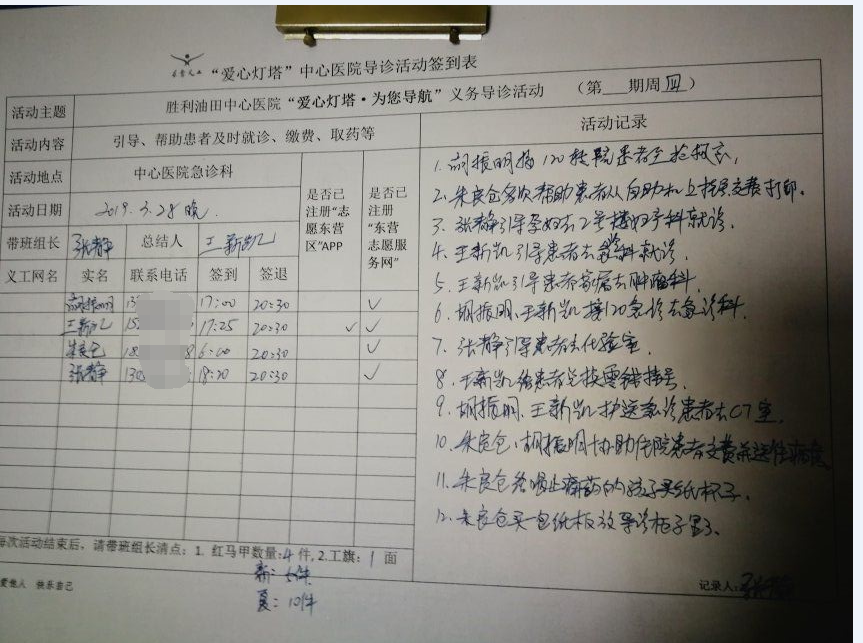 “爱心灯塔”中心医院导诊活动签到表
活动主题 胜利油田中心医院“爱心灯塔·为您导航”义务导诊活动 （第 期周四）
活动内容 引导、帮助患者及时就诊、缴费、取药等
活动地点 中心医院急诊科
活动日期 2019.3.28晚
带班组长 张静 总结人 王新凯
是否已注册“志愿东营区”APP
是否已注册“东营志愿服务网”
义工网名 实名 联系电话 签到 签退
胡振明 13 17:00 20:30 ✓
王新凯 15 17:25 20:30 ✓ ✓
朱良仓 18 8 6:00 20:30 ✓
张静 130 18:20 20:30 ✓
活动记录
1. 胡振明接120转院患者至抢救室,
2. 朱良仓多次帮助患者从自助机上挂号交费打印.
3. 张静引导孕妇去2号楼妇产科就诊.
4. 王新凯引导患者去 科就诊
5. 王新凯引导患者家属去肿瘤科.
6. 胡振明、王新凯接120急诊去急诊科.
7. 张静引导患者去化验室.
8. 王新凯给患者兑换零钱挂号.
9. 胡振明、王新凯护送急诊患者去CT室.
10. 朱良仓、胡振明协助住院患者交费并送往病房
11. 朱良仓给喝止痛药的孩子买纸杯子.
12. 朱良仓买一包纸板放导诊柜子里了.
每次活动结束后、请带班组长清点：1. 红马甲数量:4件, 2.工旗: 1 面
新: 6件
夏: 10件
爱他人 快乐自己
记录人: 张静